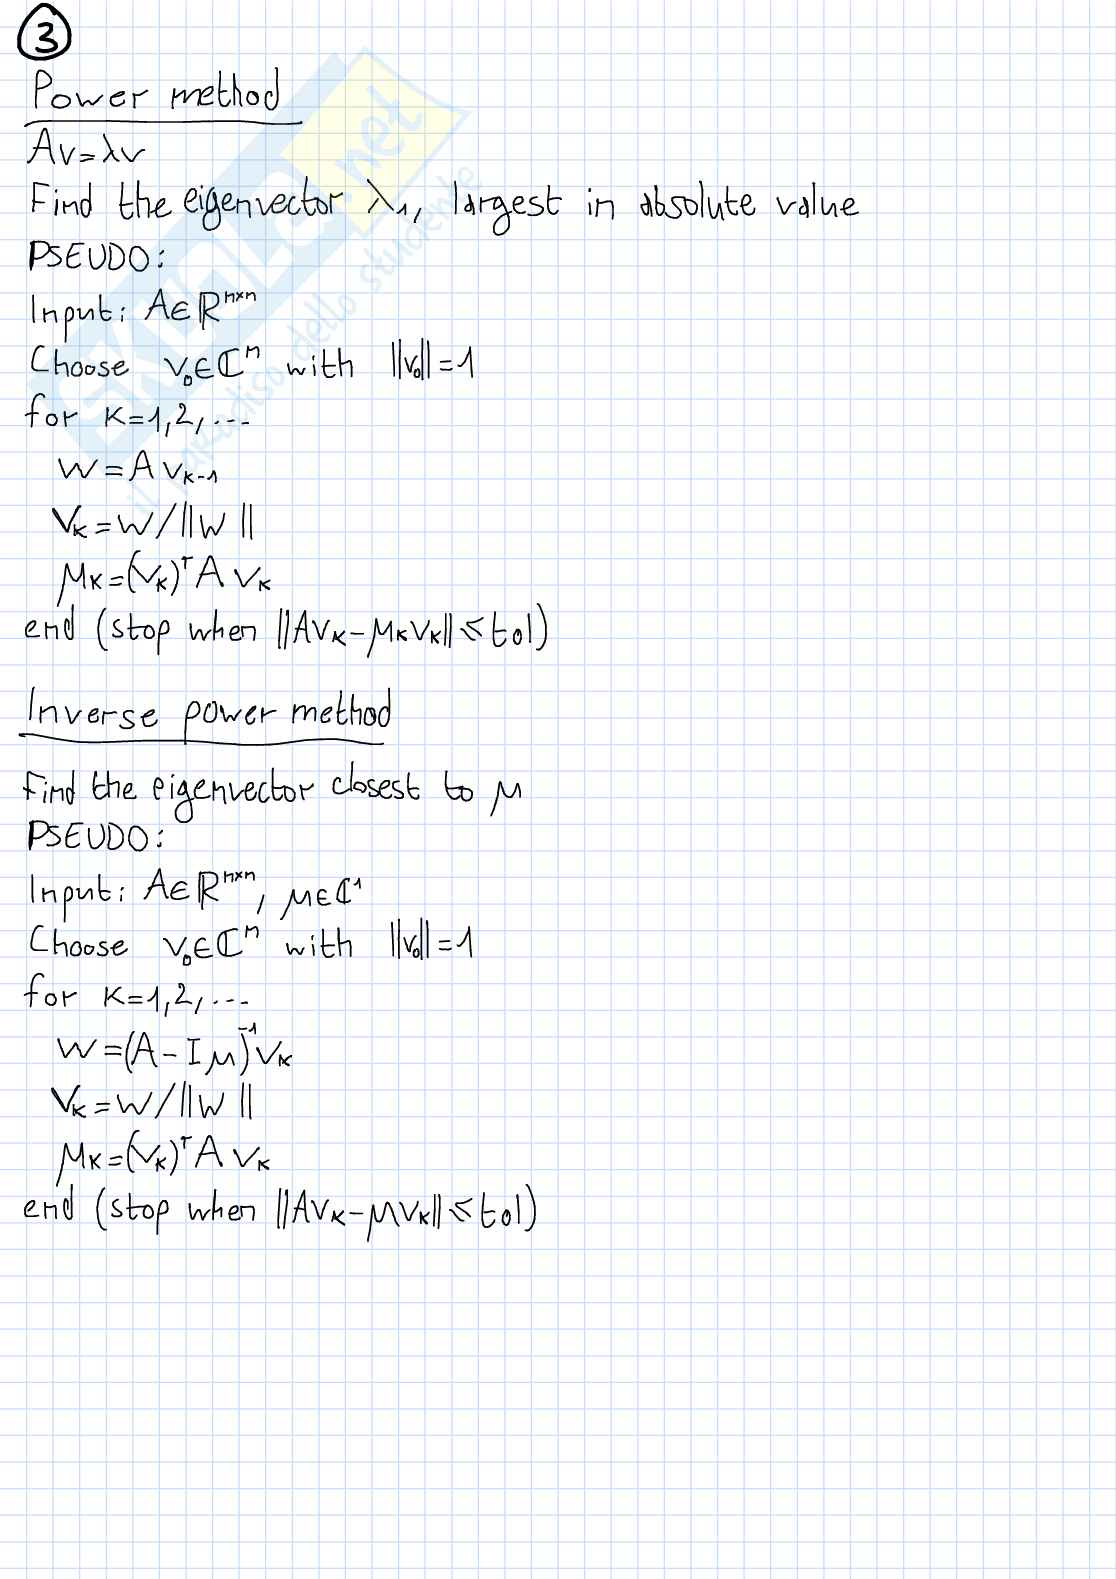 3
Power method
Av=λv
Find the eigenvector λ₁, largest in absolute value
PSEUDO:
Input: A∈ℝⁿˣⁿ
Choose v₀∈ℂⁿ with ||v₀||=1
for k=1,2,...
w=Av_{k-1}
v_k=w/||w||
μ_k=(v_k)ᵀAv_k
end (stop when ||Av_k-μ_kv_k||≤tol)
Inverse power method
Find the eigenvector closest to μ
PSEUDO:
Input: A∈ℝⁿˣⁿ, μ∈ℂ¹
Choose v₀∈ℂⁿ with ||v₀||=1
for k=1,2,...
w=(A-Iμ)⁻¹v_k
v_k=w/||w||
μ_k=(v_k)ᵀAv_k
end (stop when ||Av_k-μv_k||≤tol)
SKUOLA.net
il paradiso dello studente